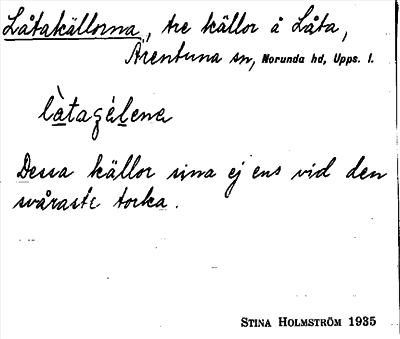 Låtakällorna, tre källor å Låta,
Ärentuna sn, Norunda hd, Upps. l.
làtagélena
Dessa källor sina ej ens vid den
svåraste torka.
STINA HOLMSTRÖM 1935